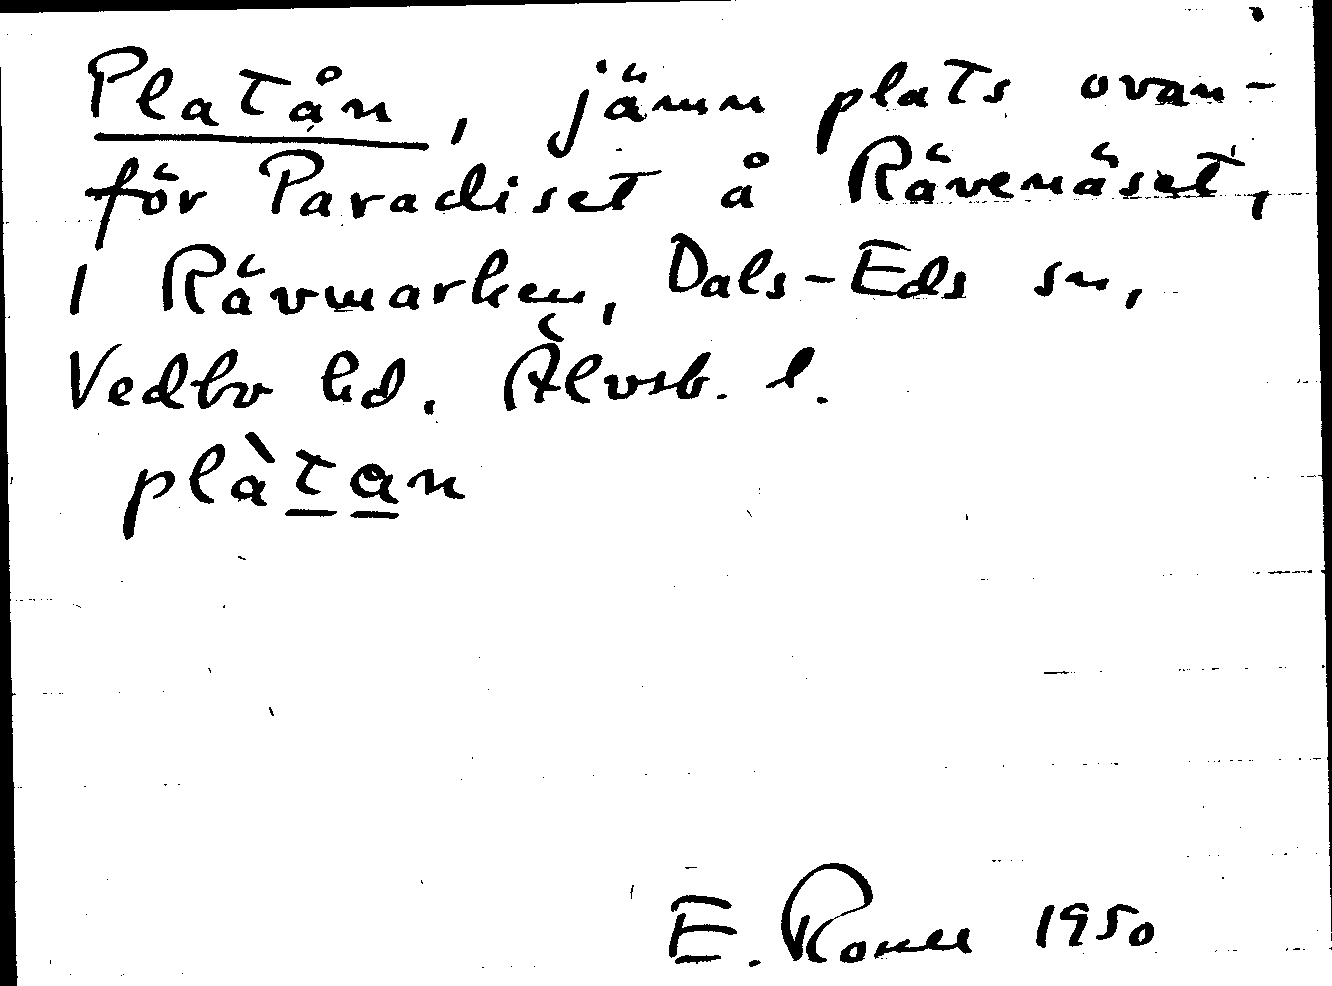 Platån, jämn plats ovan-
för Paradiset å Rävenäset,
i Rävmarken, Dals-Eds sn,
Vedbo hd. Älvsb. l.
plàtan
E. 1950